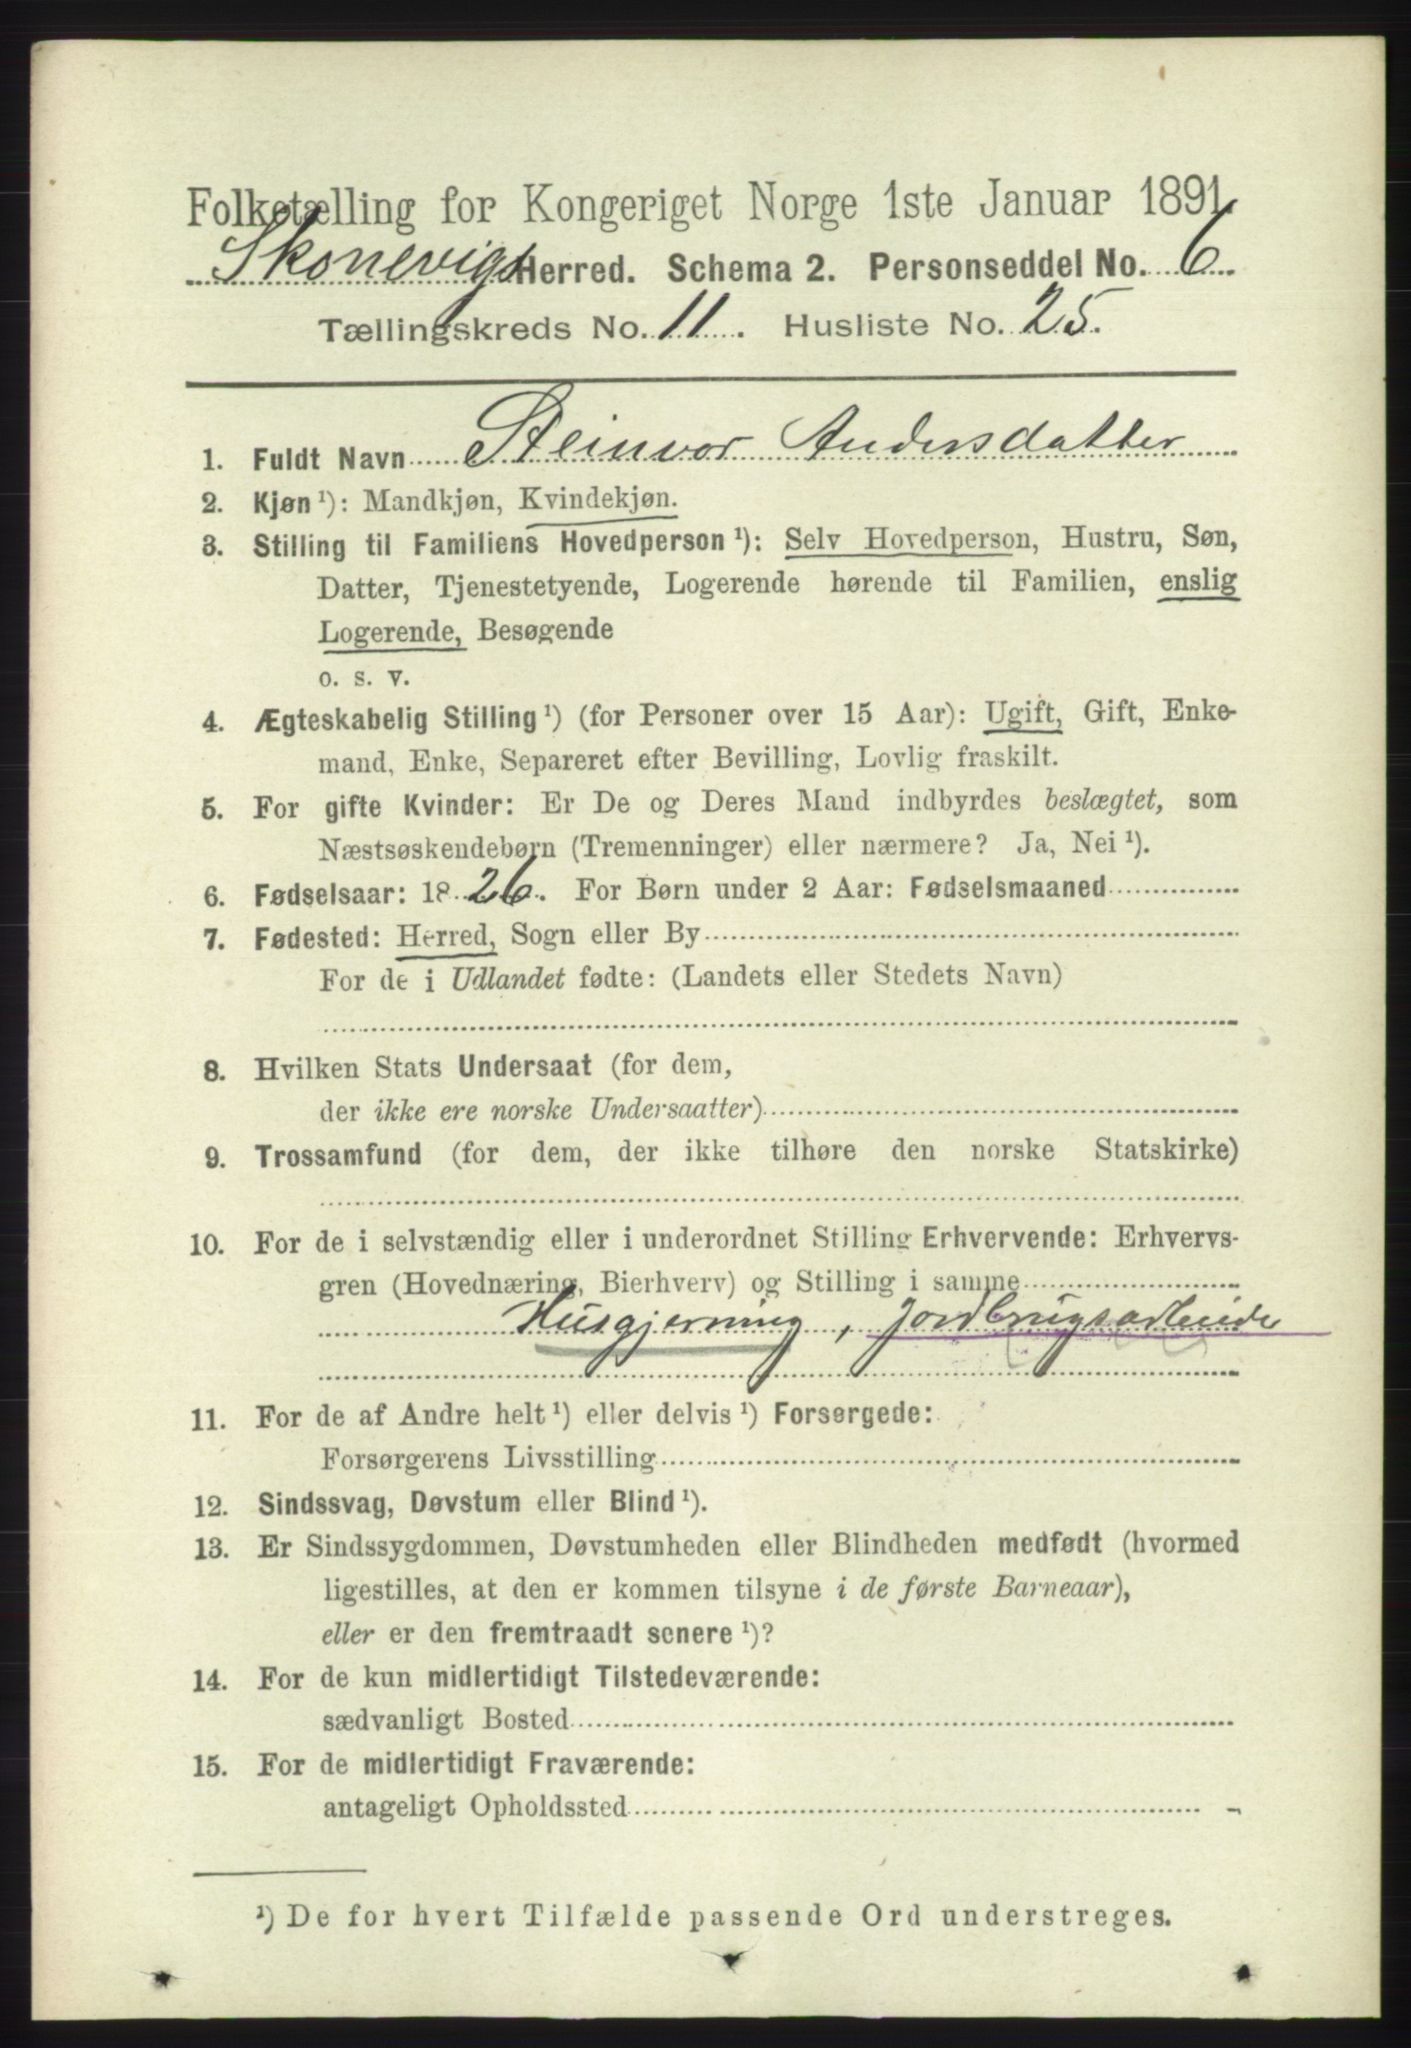 Folketælling for Kongeriget Norge 1ste Januar 1891.
Skonevigs Herred. Schema 2. Personseddel No. 6.
Tællingskreds No. 11. Husliste No. 25.
1. Fuldt Navn Steinvor Andersdatter
2. Kjøn ¹): Mandkjøn, Kvindekjøn.
3. Stilling til Familiens Hovedperson ¹): Selv Hovedperson, Hustru, Søn,
Datter, Tjenestetyende, Logerende hørende til Familien, enslig
Logerende, Besøgende
o. s. v.
4. Ægteskabelig Stilling ¹) (for Personer over 15 Aar): Ugift, Gift, Enke-
mand, Enke, Separeret efter Bevilling, Lovlig fraskilt.
5. For gifte Kvinder: Er De og Deres Mand indbyrdes beslægtet, som
Næstsøskendebørn (Tremenninger) eller nærmere? Ja, Nei ¹).
6. Fødselsaar: 1826. For Børn under 2 Aar: Fødselsmaaned
7. Fødested: Herred, Sogn eller By
For de i Udlandet fødte: (Landets eller Stedets Navn)
8. Hvilken Stats Undersaat (for dem,
der ikke ere norske Undersaatter)
9. Trossamfund (for dem, der ikke tilhøre den norske Statskirke)
10. For de i selvstændig eller i underordnet Stilling Erhvervende: Erhvervs-
gren (Hovednæring, Bierhverv) og Stilling i samme
Husgjerning, Jordbrugsarbeide
11. For de af Andre helt ¹) eller delvis ¹) Forsørgede:
Forsørgerens Livsstilling
12. Sindssvag, Døvstum eller Blind ¹).
13. Er Sindssygdommen, Døvstumheden eller Blindheden medfødt (hvormed
ligestilles, at den er kommen tilsyne i de første Barneaar),
eller er den fremtraadt senere ¹)?
14. For de kun midlertidigt Tilstedeværende:
sædvanligt Bosted
15. For de midlertidigt Fraværende:
antageligt Opholdssted
¹) De for hvert Tilfælde passende Ord understreges.